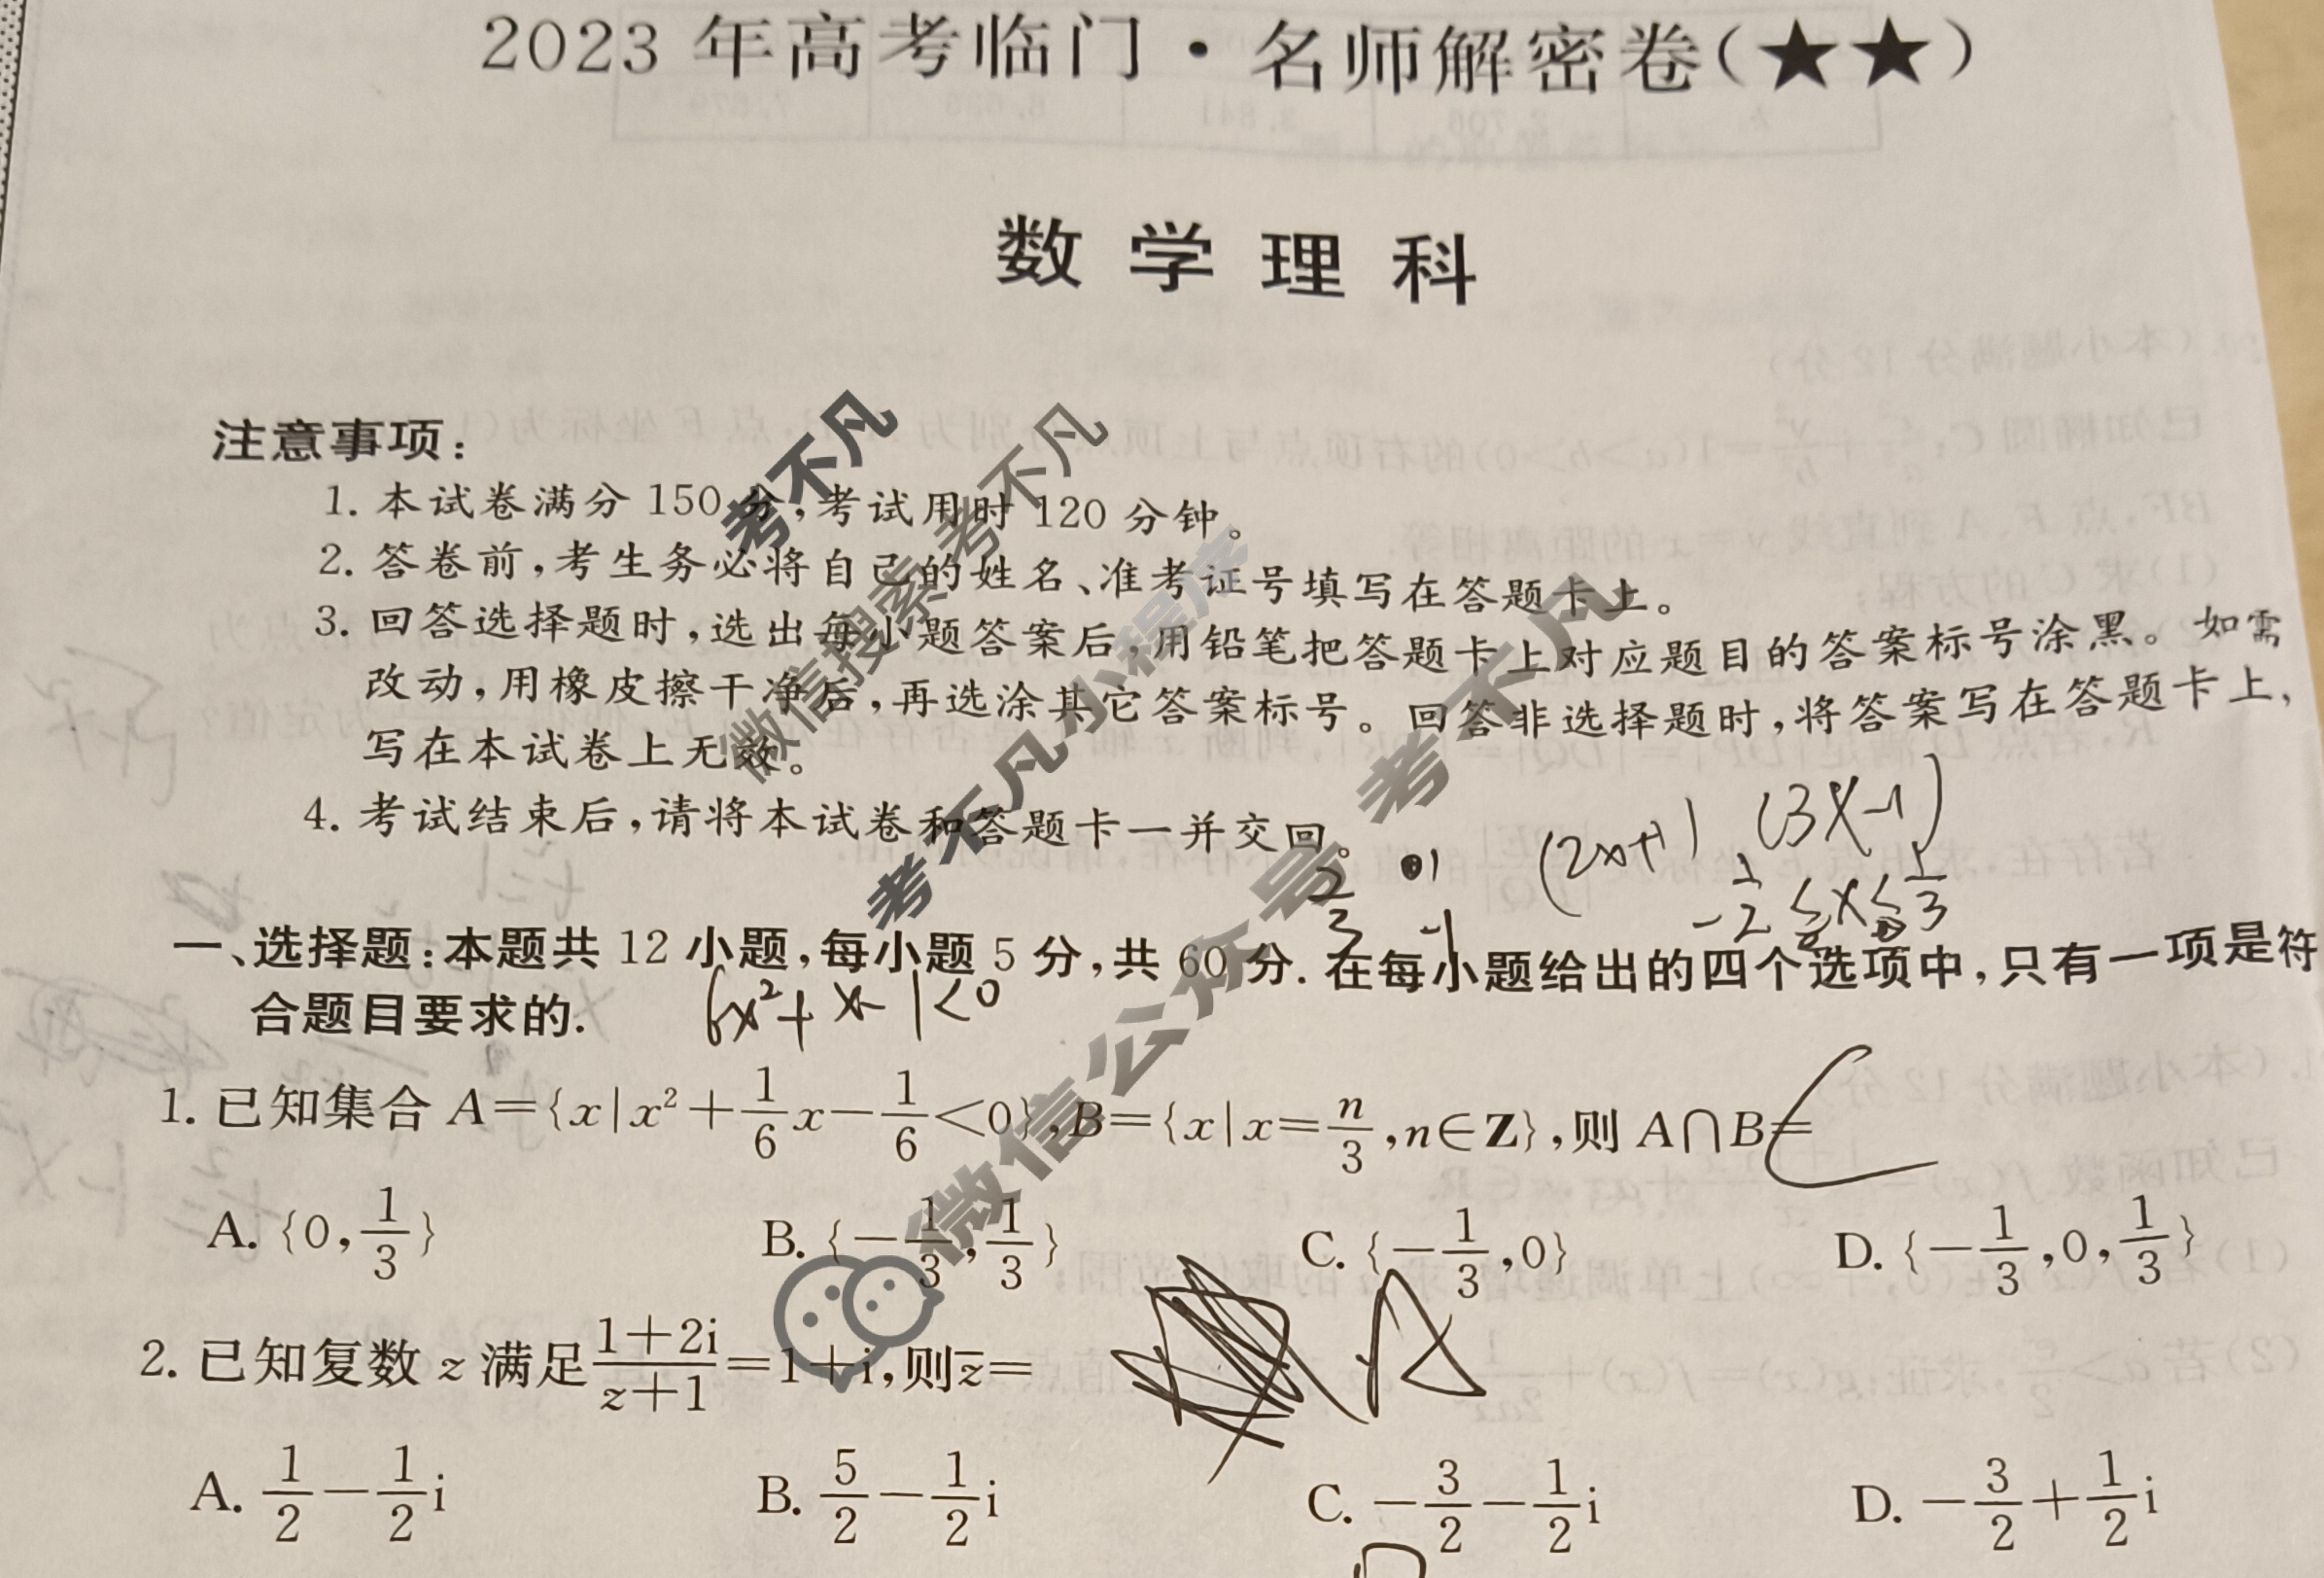 2023年高考临门·名师解密卷(★★)
数学理科
注意事项:
1. 本试卷满分150分,考试用时120分钟。
2. 答卷前,考生务必将自己的姓名、准考证号填写在答题卡上。
3. 回答选择题时,选出每小题答案后,用铅笔把答题卡上对应题目的答案标号涂黑。如需
改动,用橡皮擦干净后,再选涂其它答案标号。回答非选择题时,将答案写在答题卡上,
写在本试卷上无效。
4. 考试结束后,请将本试卷和答题卡一并交回。
(2x+1) (3x-1)
-1/2 ≤ x ≤ 1/3
一、选择题:本题共12小题,每小题5分,共60分.在每小题给出的四个选项中,只有一项是符
合题目要求的.
6x²+x-1<0
1. 已知集合 A={x|x²+1/6x-1/6<0},B={x|x=n/3,n∈Z},则 A∩B= C
A. {0,1/3} B. {-1/3,1/3} C. {-1/3,0} D. {-1/3,0,1/3}
2. 已知复数 z 满足 (1+2i)/(z+1)=1+i,则z̄= A
A. 1/2-1/2i B. 5/2-1/2i C. -3/2-1/2i D. -3/2+1/2i
考不凡
微信搜索 考不凡
考不凡小程序
微信公众号 考不凡